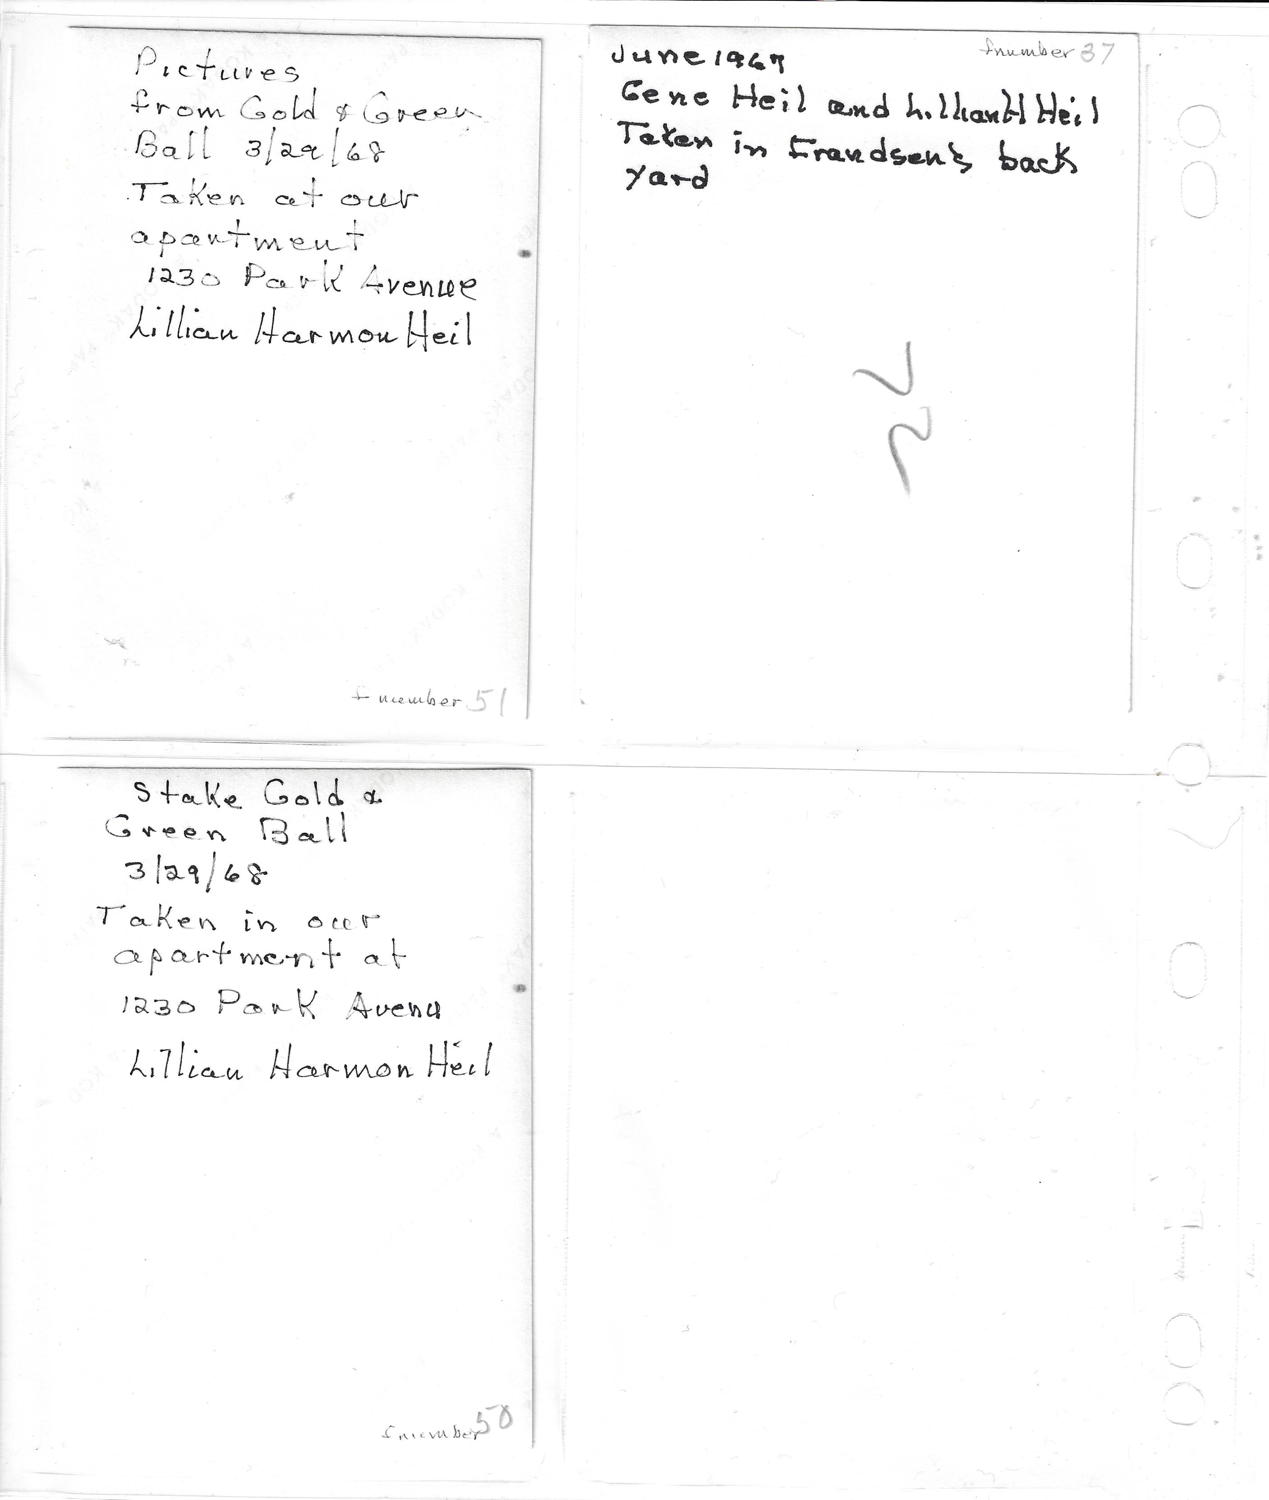 Pictures
from Gold & Green
Ball 3/29/68
Taken at our
apartment
1230 Park Avenue
Lillian Harmon Heil
fnumber 51
fnumber 37
June 1967
Gene Heil and Lillian H Heil
Taken in Frandsen's back
yard
Stake Gold &
Green Ball
3/29/68
Taken in our
apartment at
1230 Park Avenu
Lillian Harmon Heil
fnumber 50